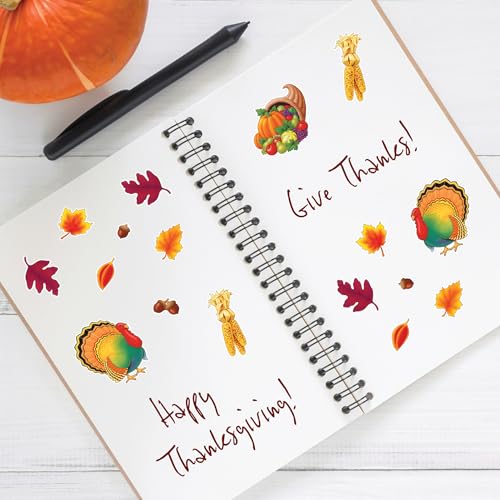 Happy
Thanksgiving!
Give Thanks!